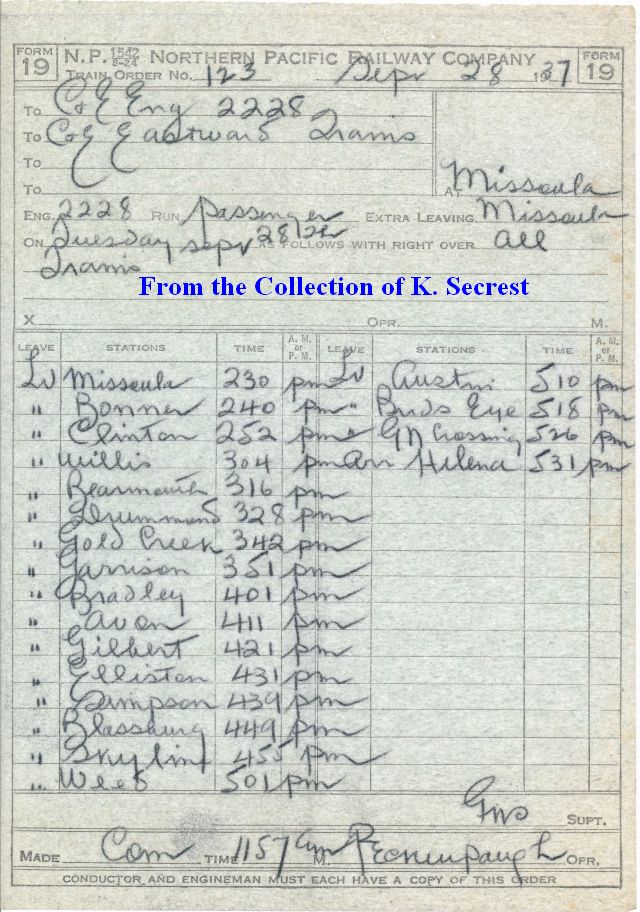 FORM 19 N.P. 1542 8-24 NORTHERN PACIFIC RAILWAY COMPANY FORM 19
TRAIN ORDER No. 123 Sept 28 1937
To C&E Eng 2228
To C&E Eastward Trains
To
To
AT Missoula
ENG. 2228 RUN Passenger EXTRA LEAVING Missoula
ON Tuesday Sept 28th AS FOLLOWS WITH RIGHT OVER all
Trains
From the Collection of K. Secrest
X OPR. M.
LEAVE STATIONS TIME A. M. or P. M. LEAVE STATIONS TIME A. M. or P. M.
Lv Missoula 230 pm Lv Austin 510 pm
" Bonner 240 pm " Birds Eye 518 pm
" Clinton 252 pm " GN Crossing 526 pm
" Willis 304 pm Arr Helena 531 pm
" Bearmouth 316 pm
" Drummond 328 pm
" Gold Creek 342 pm
" Garrison 351 pm
" Bradley 401 pm
" Avon 411 pm
" Gilbert 421 pm
" Elliston 431 pm
" Simpson 439 pm
" Blossburg 449 pm
" Skyline 455 pm
" Weed 501 pm
SUPT.
MADE Com TIME 1157 am M. OPR.
CONDUCTOR AND ENGINEMAN MUST EACH HAVE A COPY OF THIS ORDER